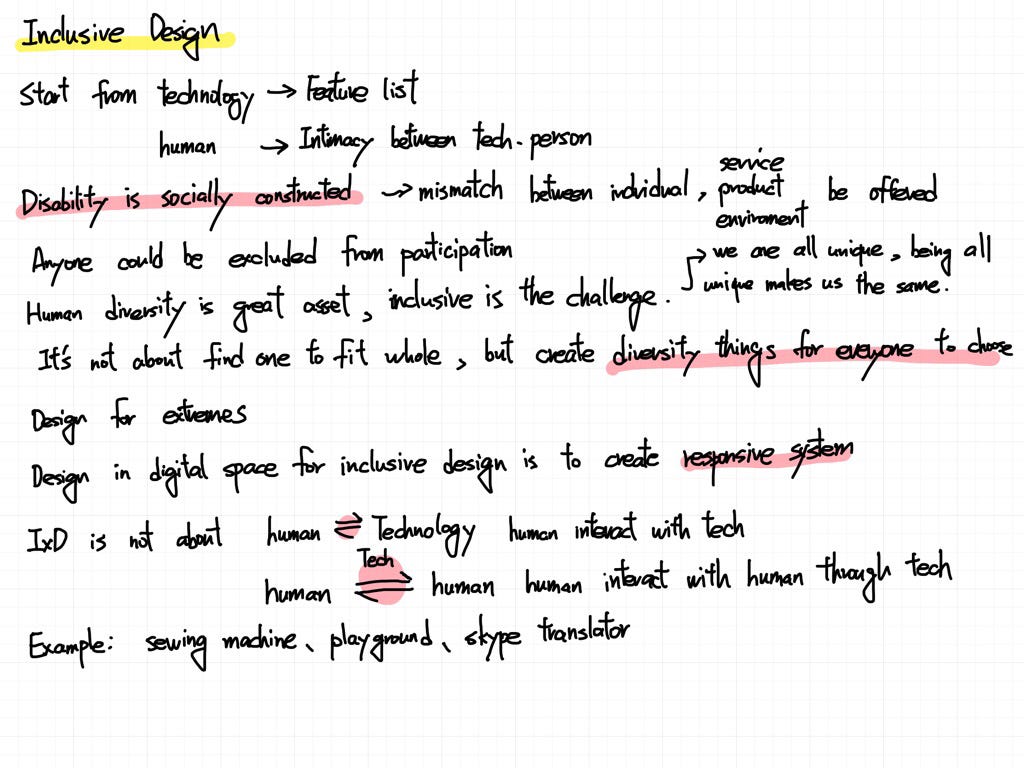 Inclusive Design
Start from technology → Feature list
human → Intimacy between tech-person
service
Disability is socially constructed → mismatch between individual, product be offered
enviroment
Anyone could be excluded from participation
→ we are all unique, being all
unique makes us the same.
Human diversity is great asset, inclusive is the challenge.
It's not about find one to fit whole, but create diversity things for everyone to choose
Design for extremes
Design in digital space for inclusive design is to create responsive system
IxD is not about human ⇌ Technology human interact with tech
Tech
human ⇌ human human interact with human through tech
Example: sewing machine、playground、skype translator